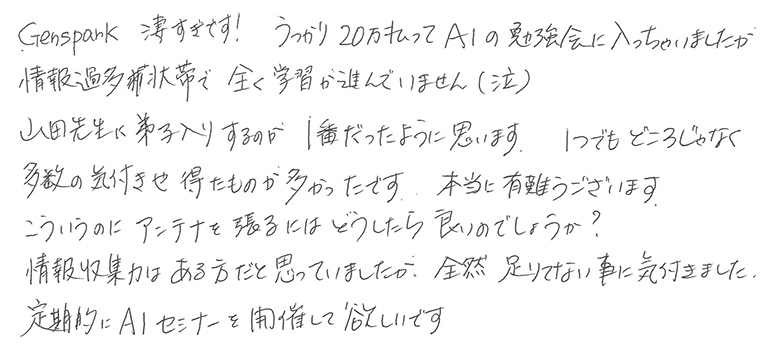 Genspark 凄すぎです! うっかり20万払ってAIの勉強会に入っちゃいましたが
情報過多症状態で 全く学習が進んでいません(泣)
山田先生に弟子入りするのが 1番だったように思います. 1つでもどころじゃなく
多数の気付きや 得たものが多かったです. 本当に有難うございます.
こういうのに アンテナを張るにはどうしたら良いのでしょうか?
情報収集力はある方だと思っていましたが. 全然 足りてない事に気付きました.
定期的にAIセミナーを開催して欲しいです